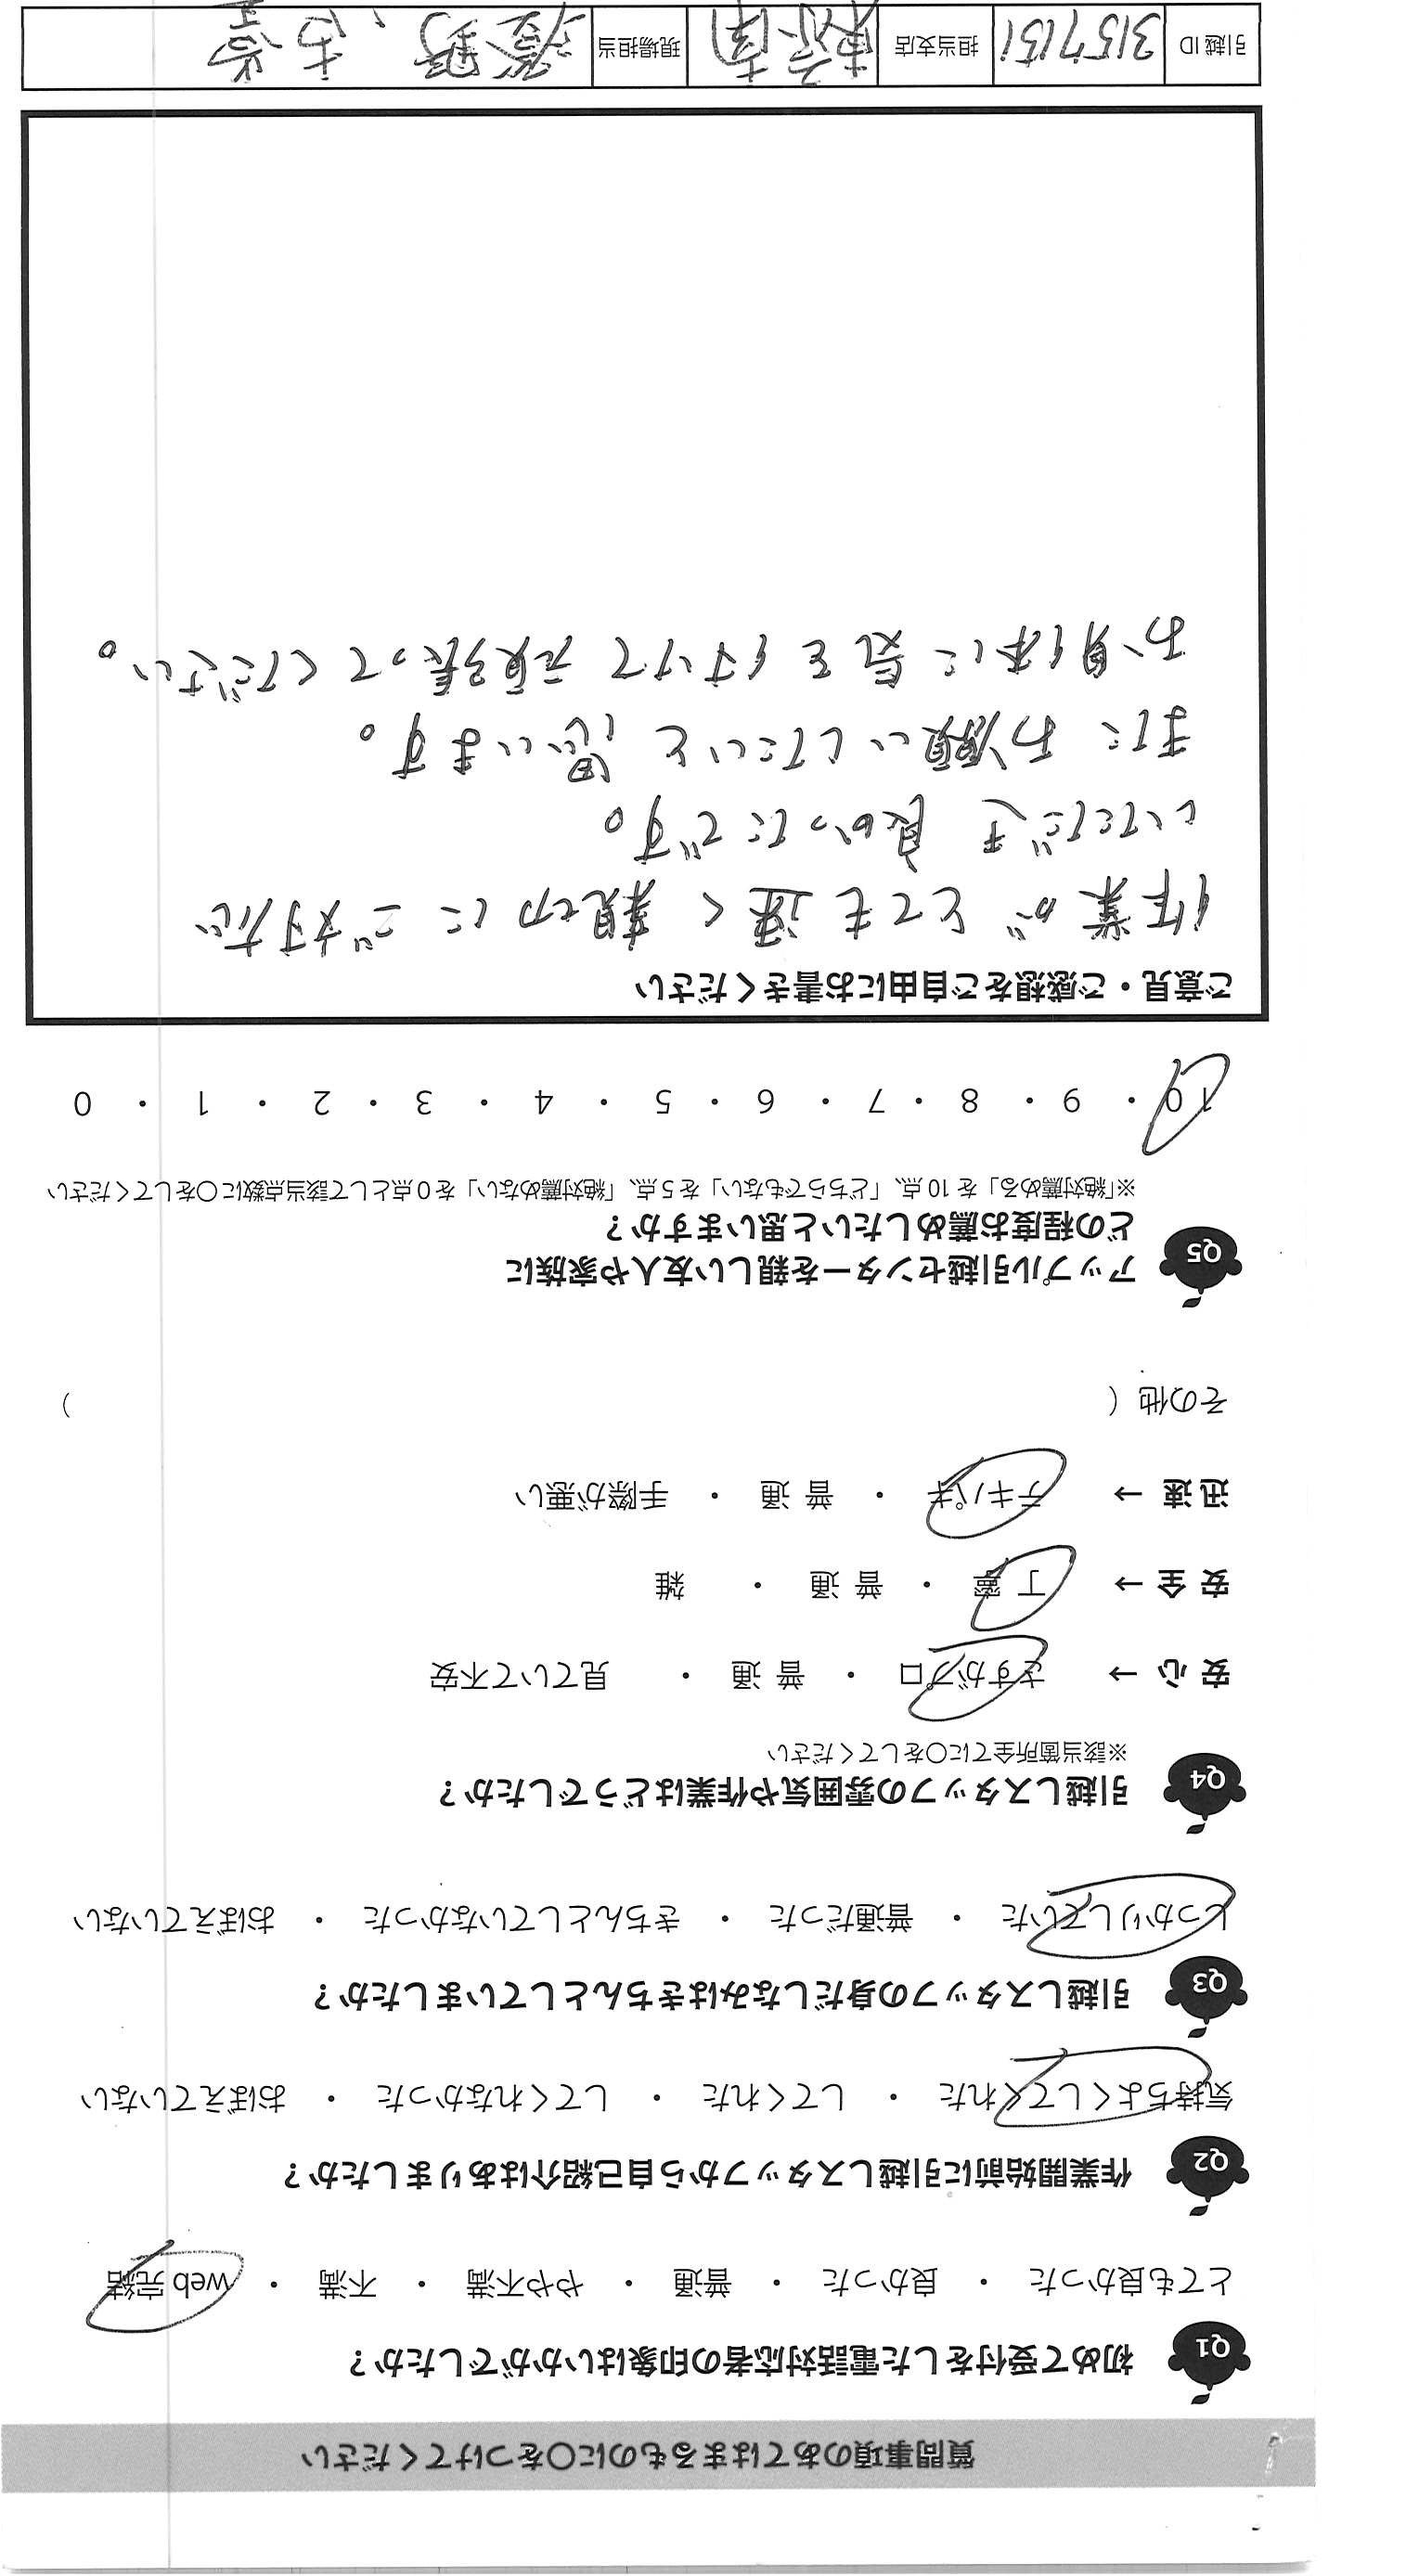 質問事項のあてはまるものに〇をつけてください
Q1 初めて受付をした電話対応者の印象はいかがでしたか？
とても良かった ・ 良かった ・ 普通 ・ やや不満 ・ 不満 ・ web 完結
Q2 作業開始前に引越しスタッフから自己紹介はありましたか？
気持ちよくしてくれた ・ してくれた ・ してくれなかった ・ おぼえていない
Q3 引越しスタッフの身だしなみはきちんとしていましたか？
しっかりしていた ・ 普通だった ・ きちんとしていなかった ・ おぼえていない
Q4 引越しスタッフの雰囲気や作業はどうでしたか？
※該当箇所全てに〇をしてください
安 心 → さすがプロ ・ 普 通 ・ 見ていて不安
安 全 → 丁 寧 ・ 普 通 ・ 雑
迅 速 → テキパキ ・ 普 通 ・ 手際が悪い
その他（ ）
Q5 アップル引越センターを親しい友人や家族に
どの程度お薦めしたいと思いますか？
※「絶対薦める」を 10 点、「どちらでもない」を 5 点、「絶対薦めない」を 0 点として該当点数に〇をしてください
10 ・ 9 ・ 8 ・ 7 ・ 6 ・ 5 ・ 4 ・ 3 ・ 2 ・ 1 ・ 0
ご意見・ご感想をご自由にお書きください
作業がとても速く親切にご対応
いただき良かったです。
またお願いしたいと思います。
お身体に気を付けて頑張ってください。
引越 ID 3157151 担当支店 東京南 現場担当